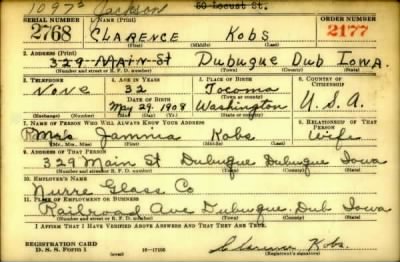 1097½ Jackson 50 Locust St.
SERIAL NUMBER 1. NAME (Print) ORDER NUMBER
2768 CLARENCE KOBS 2177
(First) (Middle) (Last)
2. ADDRESS (Print)
329 MAIN St Dubuque Dub Iowa.
(Number and street or R. F. D. number) (Town) (County) (State)
3. TELEPHONE 4. AGE IN YEARS 5. PLACE OF BIRTH 6. COUNTRY OF CITIZENSHIP
None 32 Tocoma
DATE OF BIRTH (Town or county)
May 29, 1908 Washington U.S.A.
(Mo.) (Day) (Yr.) (State or country)
7. NAME OF PERSON WHO WILL ALWAYS KNOW YOUR ADDRESS 8. RELATIONSHIP OF THAT PERSON
Mrs Jammia Kobs Wife
(Mr., Mrs., Miss) (First) (Middle) (Last)
9. ADDRESS OF THAT PERSON
329 Main St Dubuque Dubuque Iowa
(Number and street or R. F. D. number) (Town) (County) (State)
10. EMPLOYER'S NAME
Nurre Glass Co
11. PLACE OF EMPLOYMENT OR BUSINESS
Railroad Ave Dubuque. Dub Iowa
(Number and street or R. F. D. number) (Town) (County) (State)
I AFFIRM THAT I HAVE VERIFIED ABOVE ANSWERS AND THAT THEY ARE TRUE.
REGISTRATION CARD
D. S. S. Form 1 (over) 16-17105 Clarence Kobs.
(Registrant's signature)